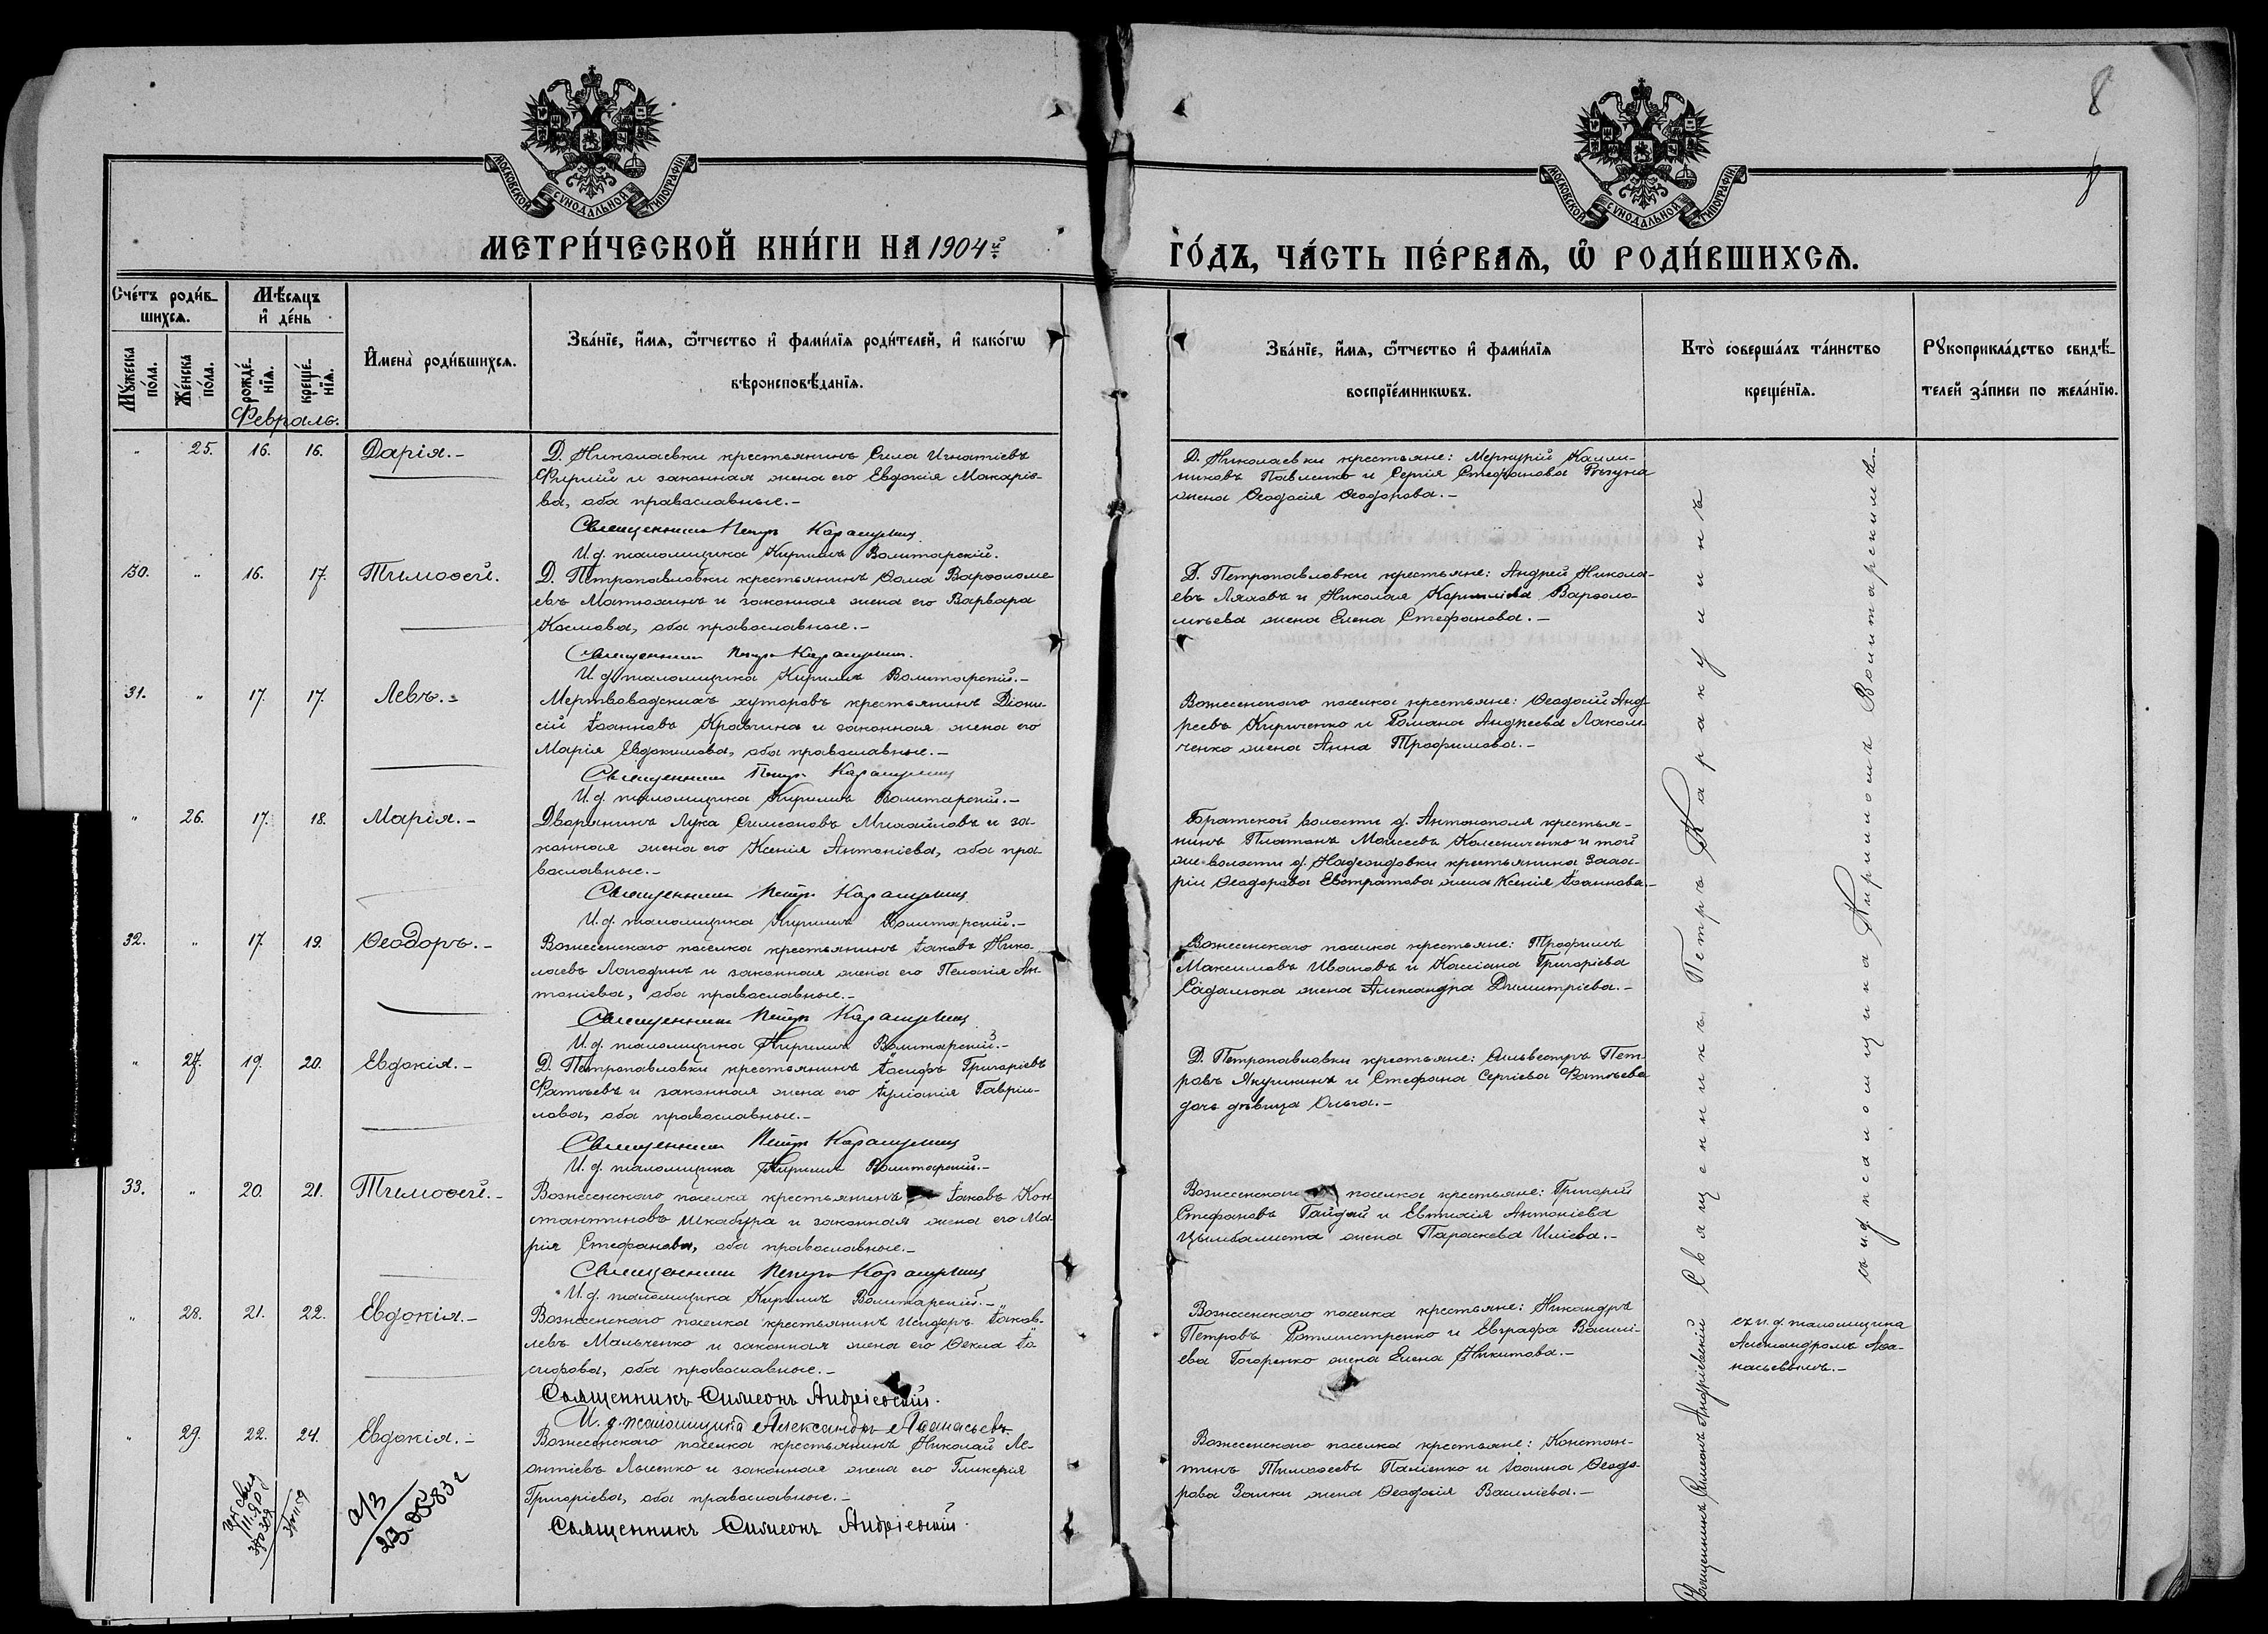 8
МОСКОВСКОЙ СѴНОДАЛЬНОЙ ТИПОГРАФІИ
МОСКОВСКОЙ СѴНОДАЛЬНОЙ ТИПОГРАФІИ
МЕТРИ́ЧЕСКОЙ КНИ́ГИ НА 1904й
ГО́ДЪ, ЧА́СТЬ ПЕ́РВАѦ, Ѡ҆ РОДИ́ВШИХСѦ.
Сче́тъ роди́в-
шихсѧ.
Мѣ́сѧцъ
и҆ де́нь
Мꙋ́жеска
по́ла.
Же́нска
по́ла.
рожде́-
нїѧ.
креще́-
нїѧ.
И҆мена̀ роди́вшихсѧ.
Зва́нїе, и҆́мѧ, ѻ҆́тчество и҆ фами́лїѧ роди́телей, и҆ како́гѡ
вѣроисповѣ́данїѧ.
Зва́нїе, и҆́мѧ, ѻ҆́тчество и҆ фами́лїѧ
воспрїе́мникѡвъ.
Кто̀ соверша́лъ та́инство
креще́нїѧ.
Рꙋкоприкла́дство свидѣ́-
телей за́писи по жела́нїю.
Февраль.
" 25. 16. 16. Дарія.-
Д. Николаевки крестьянинъ Сила Игнатіевъ
Фирпій и законная жена его Евдокія Макаріе-
ва, оба православные.-
Священникъ Петръ Каракулинъ
И.д. псаломщика Кириллъ Волитарскій.
Д. Николаевки крестьяне: Меркурій Калли-
никовъ Павленко и Сергія Стефанова Рягуна
жена Ѳеодосія Ѳеодорова.-
30. " 16. 17. Тимоѳей.
Д. Петропавловки крестьянинъ Ѳома Варѳоломе
евъ Матюхинъ и законная жена его Варвара
Космова, оба православные.-
Священникъ Петръ Каракулинъ.
И.д. псаломщика Кириллъ Волитарскій.-
Д. Петропавловки крестьяне: Андрей Никола-
евъ Ляховъ и Николая Варѳоло-
мѣева жена Елена Стефанова.-
31. " 17. 17. Левъ.-
Мертвоводскихъ хуторовъ крестьянинъ Діони-
сій Іоанновъ Кравчина и законная жена его
Марія Евдокимова, оба православные.-
Священникъ Петръ Каракулинъ
И.д. псаломщика Кириллъ Волитарскій.-
Вознесенскаго поселка крестьяне: Ѳеодосій Анд-
реевъ Кириченко и Романа Андреева Лаком-
ченко жена Анна Трофимова.-
" 26. 17. 18. Марія.-
Дворянинъ Лука Симеоновъ Михайловъ и за-
конная жена его Ксенія Антоніева, оба пра-
вославные.-
Священникъ Петръ Каракулинъ
И.д. псаломщика Кириллъ Волитарскій.-
Братской волости д. Антонополя крестья-
нинъ Платонъ Моисеевъ Колесниченко и той
же волости д. крестьянина Заха-
рія Ѳеодорова Евстратова жена Ксенія Іоаннова.-
32. " 17. 19. Ѳеодоръ.-
Вознесенскаго поселка крестьянинъ Іаковъ Нико-
лаевъ Лагодинъ и законная жена его Пелагія Ан-
тоніева, оба православные.-
Священникъ Петръ Каракулинъ
И.д. псаломщика Кириллъ Волитарскій.-
Вознесенскаго поселка крестьяне: Трофимъ
Максимовъ Ивановъ и Кассіана Григоріева
Садалюка жена Александра Димитріева.-
" 27. 19. 20. Евдокія.-
Д. Петропавловки крестьянинъ Іосифъ Григоріевъ
Фатѣевъ и законная жена его Іуліанія Гавріи-
лова, оба православные.-
Священникъ Петръ Каракулинъ
И.д. псаломщика Кириллъ Волитарскій.-
Д. Петропавловки крестьяне: Сильвестръ Пет-
ровъ Якушкинъ и Стефана Сергіева Фатѣева
дочь дѣвица Ольга.-
33. " 20. 21. Тимоѳей.-
Вознесенскаго поселка крестьянинъ Іаковъ Кон-
стантиновъ Шкабура и законная жена его Ма-
рія Стефанова, оба православные.-
Священникъ Петръ Каракулинъ
И.д. псаломщика Кириллъ Волитарскій.-
Вознесенскаго поселка крестьяне: Григорій
Стефановъ Гайдай и Евтихія Антоніева
Цымбалиста жена Параскева Иліева.-
" 28. 21. 22. Евдокія.-
Вознесенскаго поселка крестьянинъ Исидоръ Іаков-
левъ Мальченко и законная жена его Ѳекла Іо
сифова, оба православные.-
Священникъ Симеонъ Андріевскій.
И.д. псаломщика Александръ Аѳанасьевъ
Вознесенскаго поселка крестьяне: Никандръ
Петровъ Ротмистренко и Евграфа Василі-
ева Гогоренко жена Елена Никитова.-
" 29. 22. 24. Евдокія.-
Вознесенскаго поселка крестьянинъ Николай Ле-
онтіевъ Лысенко и законная жена его Гликерія
Григоріева, оба православные.-
Священникъ Симеонъ Андріевскій.
Вознесенскаго поселка крестьяне: Констан-
тинъ Тимоѳеевъ Паліенко и Іоанна Ѳеодо-
рова Заики жена Ѳеодосія Василіева.-
Священникъ Петръ Каракулинъ
съ и.д. псаломщика Кирилломъ Волитарскимъ.-
Священникъ Симеонъ Андріевскій
съ и.д. псаломщика
Александромъ Аѳа-
насьевымъ.-
а/з